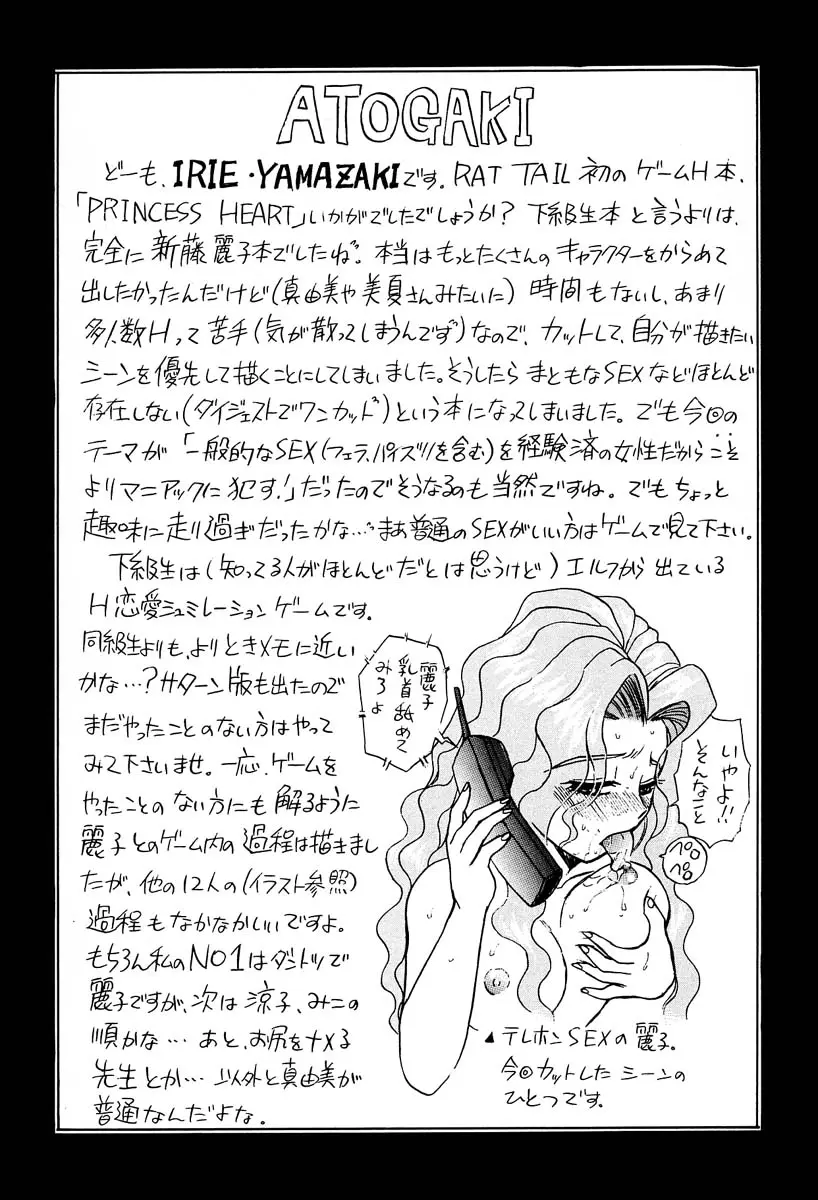 ATOGAKI
どーも、IRIE・YAMAZAKIです。RAT TAIL 初の ゲームH本、
「PRINCESS HEART」いかがでしたでしょうか? 下級生本 と言うよりは、
完全に 新藤 麗子本でしたね。本当は もっとたくさんの キャラクターをからめて
出したかったんだけど(真由美や 美夏さんみたいに) 時間もないし、あまり
多人数Hって 苦手(気が散ってしまうんです)なので、カットして、自分が描きたい
シーンを優先して描くことにしてしまいました。そうしたら まともなSEXなどほとんど
存在しない(ダイジェストでワンカット)という本になってしまいました。でも今回の
テーマが「一般的なSEX(フェラ、パイズリを含む)を経験済の女性だからこそ
よりマニアックに犯す!」だったのでそうなるのも当然ですね。でもちょっと
趣味に走り過ぎだったかな…。まあ普通のSEXがいい方はゲームで見て下さい。
下級生は(知ってる人がほとんどだとは思うけど) エルフから 出ている
H恋愛シュミレーションゲームです。
同級生よりも、よりときメモに近い
かな…? サターン版も出たので
まだやったことのない方はやって
みて下さいませ。一応、ゲームを
やったことの ない方にも 解るように
麗子 とのゲーム内の過程は描きまし
たが、他の12人の(イラスト参照)
過程も なかなかいいですよ。
もちろん私のNO1はダントツで
麗子ですが、次は 涼子、みこの
順かな… あと、お尻をナメる
先生とか… 以外と真由美が
普通なんだよな。
麗子
乳首舐めて
みろよ
いやよ!!
そんなこと
ペロ
ペロ
▲テレホンSEXの麗子。
今回カットした シーンの
ひとつです。